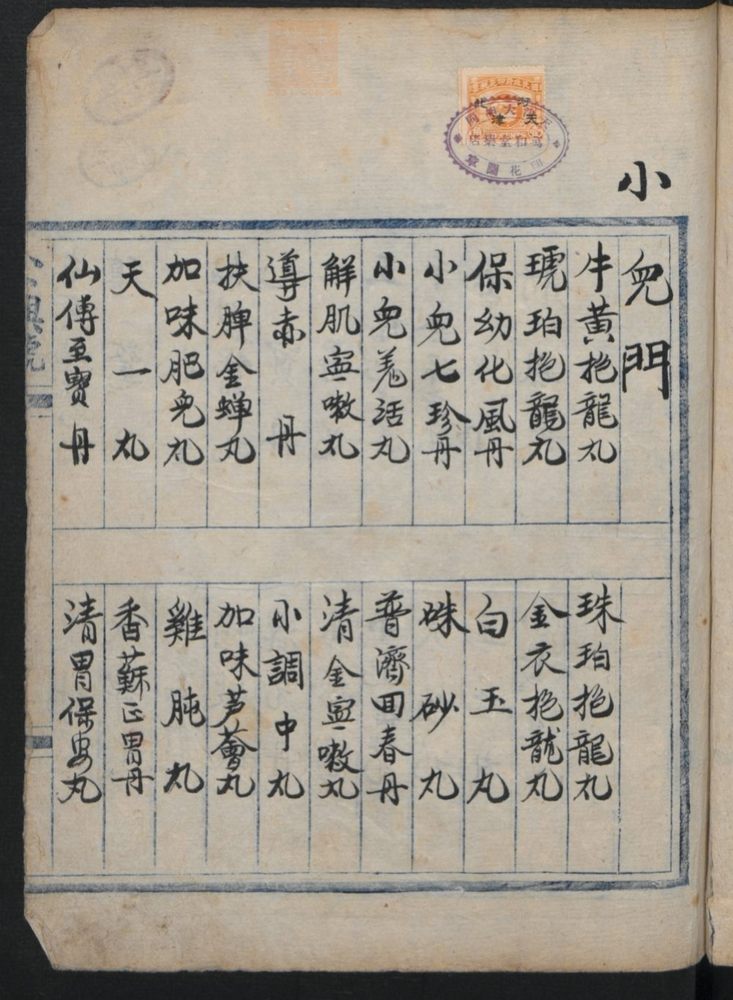 小兒門
牛黃抱龍丸
琥珀抱龍丸
保幼化風丹
小兒七珍丹
小兒羌活丸
解肌寍嗽丸
導赤丹
扶脾金蟬丸
加味肥兒丸
天一丸
仙傳至寶丹
珠珀抱龍丸
金衣抱龍丸
白玉丸
硃砂丸
普濟回春丹
清金寍嗽丸
小調中丸
加味芦薈丸
雞肫丸
香蘇正胃丹
清胃保安丸